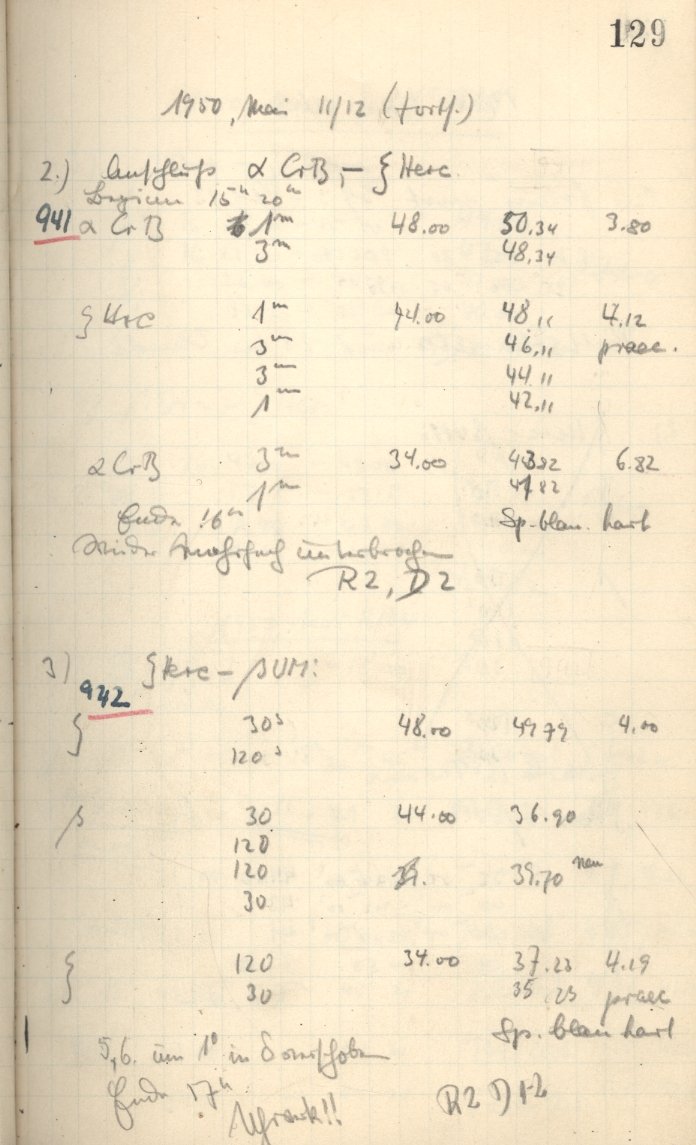 129
1950, Mai 11/12 (Fortf.)
2.) Anschluß α CrB, – ζ Herc.
Beginn 15ʰ 20ᵐ
941 α CrB 1ᵐ 48.00 50.34 3.80
3ᵐ 48.34
ζ Herc 1ᵐ 44.00 48.11 4.12
3ᵐ 46.11 praec.
3ᵐ 44.11
1ᵐ 42.11
α CrB 3ᵐ 34.00 43.82 6.82
1ᵐ 41.82
Ende 16ʰ Sp. blau. hart
Wieder mehrfach unterbrochen
R2, D2
3) ζ Herc – β UM:
942
ζ 30ˢ 48.00 49.79 4.00
120ˢ
β 30 44.00 36.90
120
120 39.70 neu
30
ζ 120 34.00 37.23 4.19
30 35.23 praec
Sp. blau hart
5,6. um 1° in δ verschoben
Ende 17ʰ
R2 D1-2